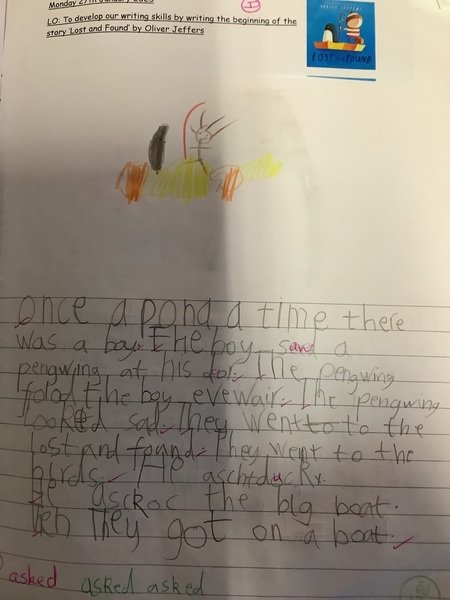 Monday 27th January 2025
LO: To develop our writing skills by writing the beginning of the
story 'Lost and Found' by Oliver Jeffers
LOST AND FOUND
once a pond a time there
was a boy. The boy saw a
pengwing at his dol. The pengwing
folod the boy evewair. The pengwing
looked sad. They went to to the
lost and found. They went to the
birds. He ascht ducky.
He asckoc the big boat.
Ten They got on a boat.
asked asked asked